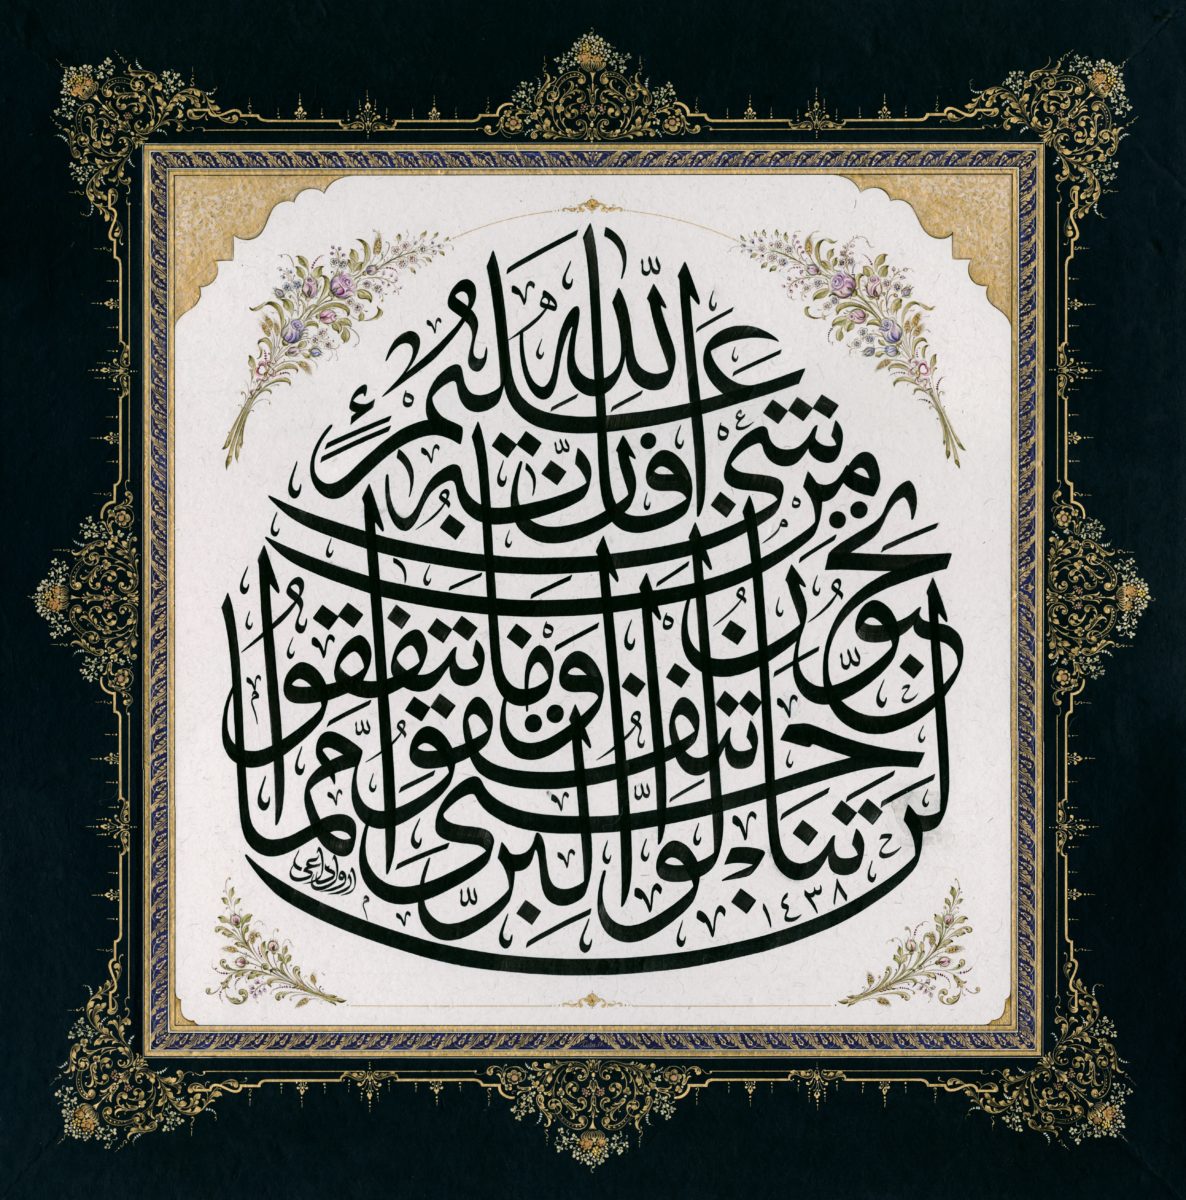 لَنْ تَنَالُوا الْبِرَّ حَتَّى تُنْفِقُوا مِمَّا تُحِبُّونَ وَمَا تُنْفِقُوا مِنْ شَيْءٍ فَإِنَّ اللَّهَ بِهِ عَلِيمٌ
١٤٣٨